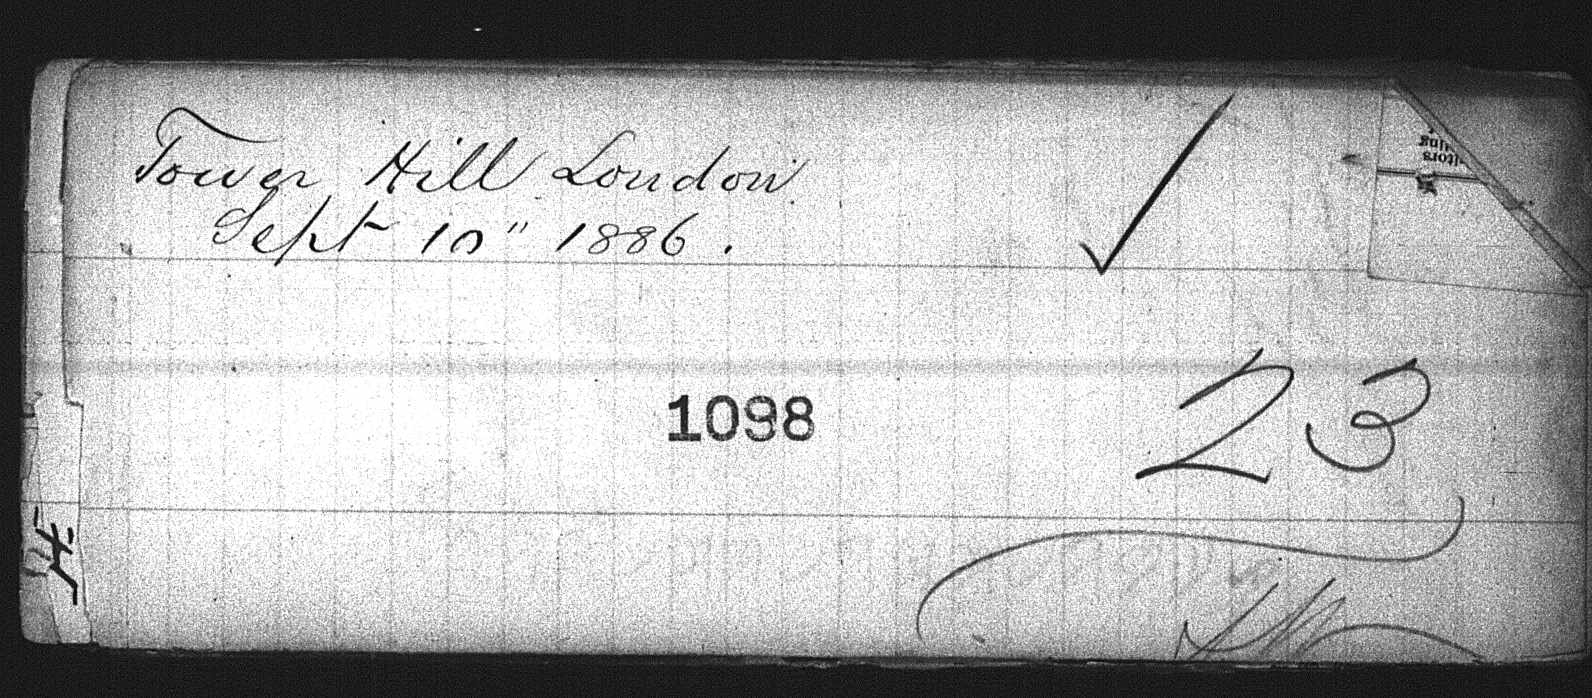 Tower Hill London
Sept 10" 1886.
1098
23